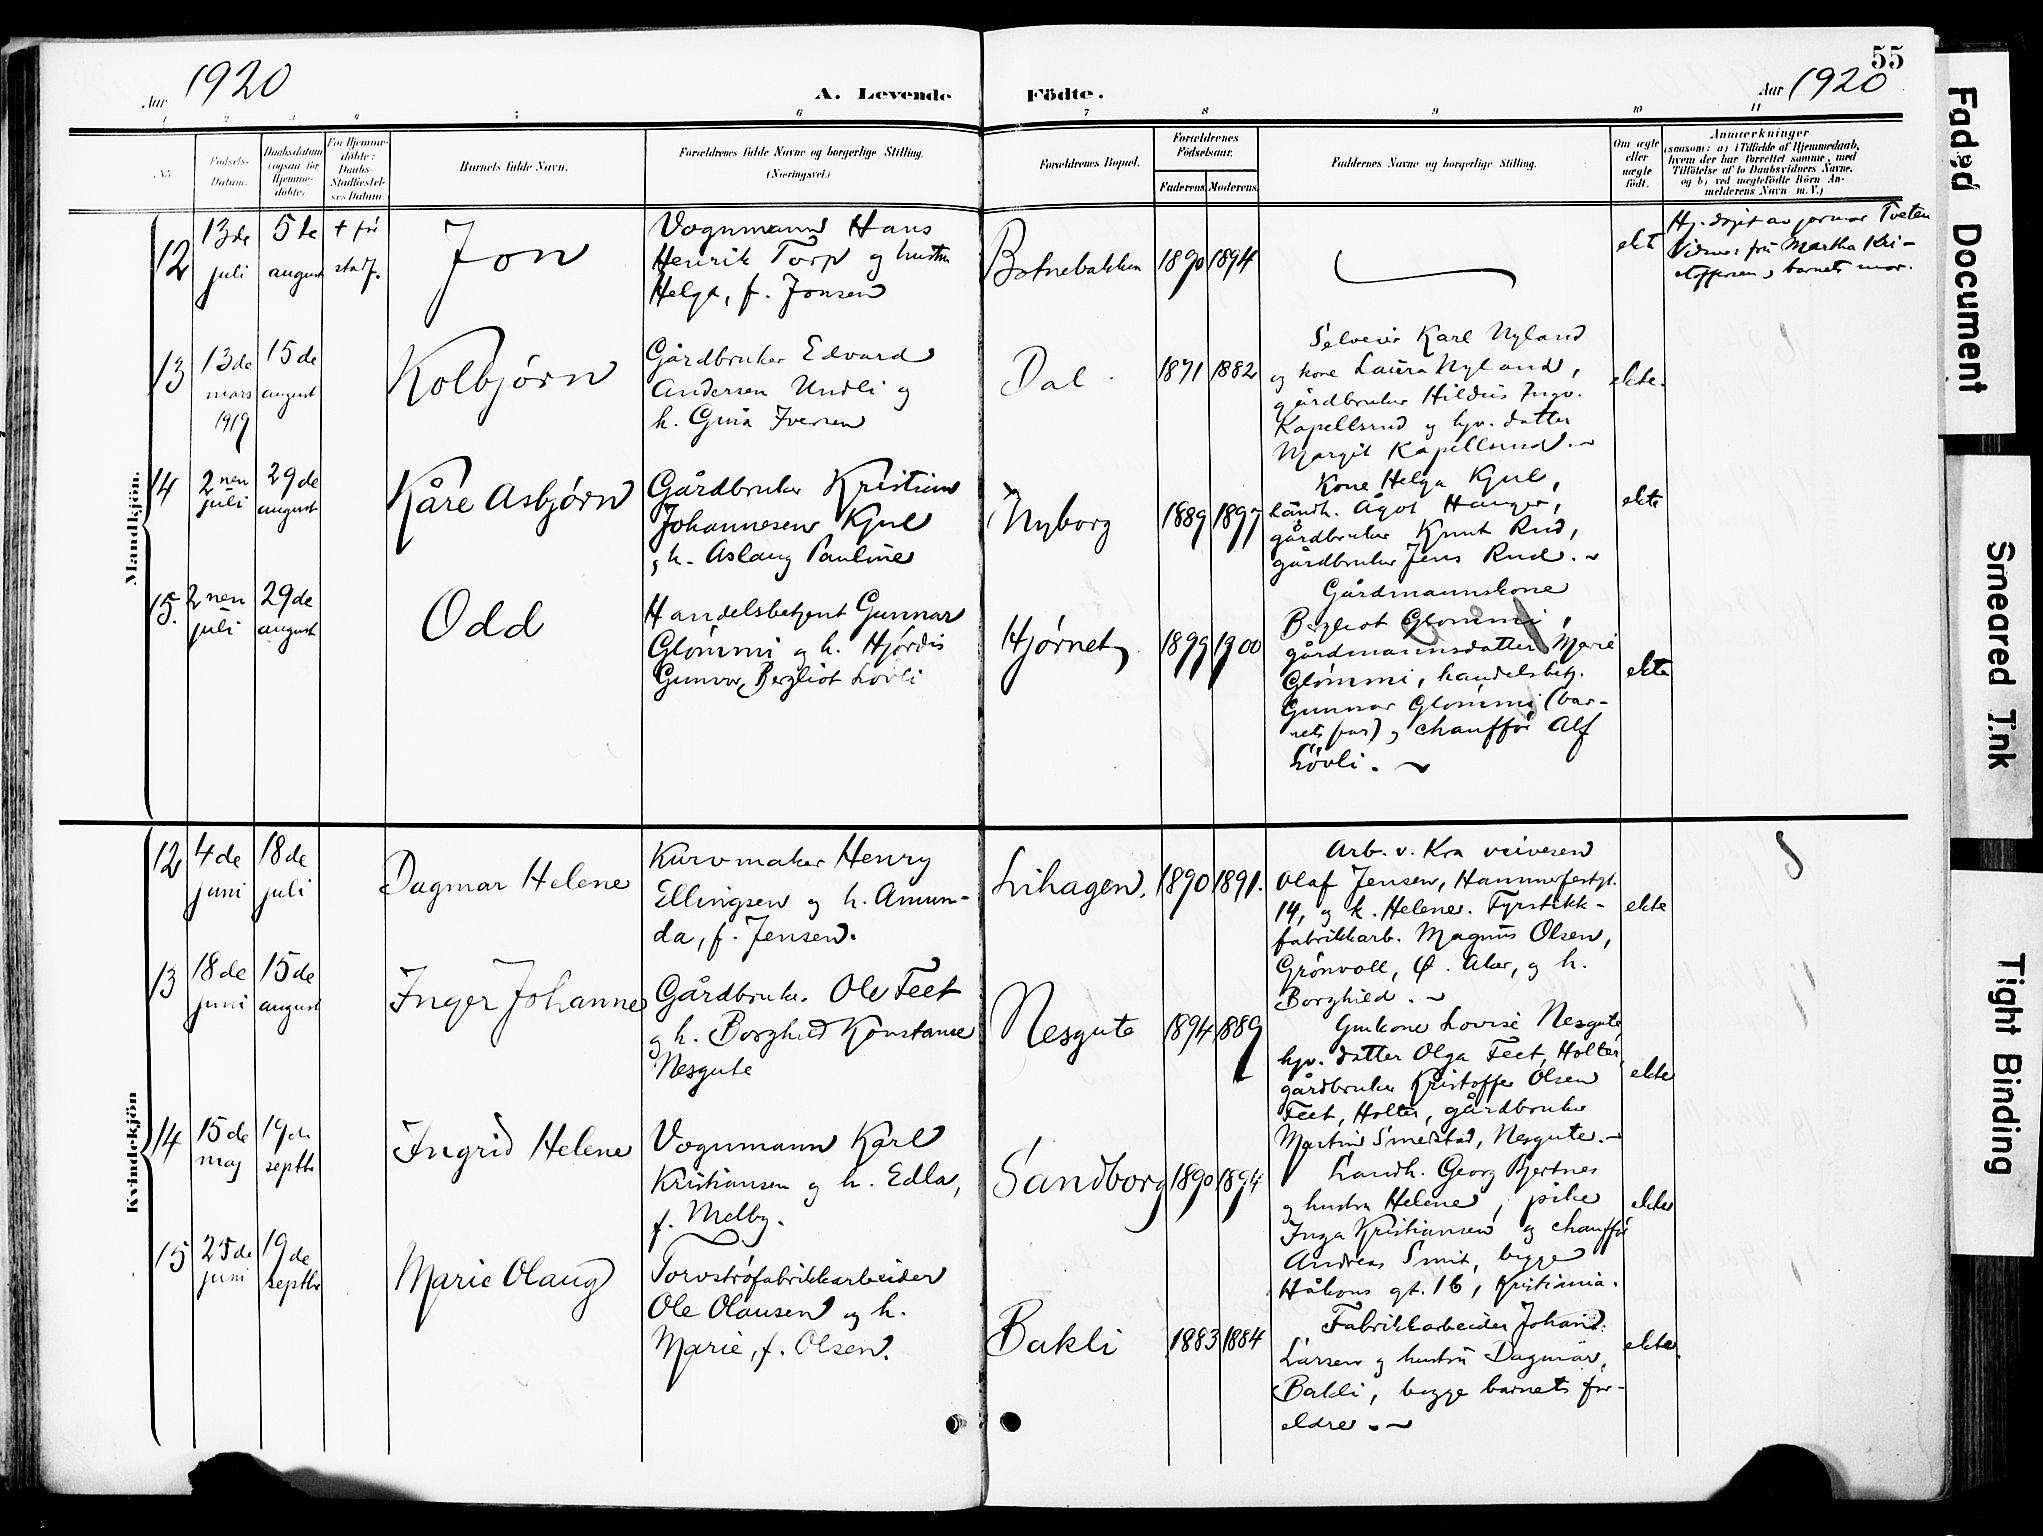 55
Aar 1920
A. Levende Födte.
Aar 1920
1 2 3 4 5 6 7 8 9 10 11
No
Fødsels-
Datum.
Daabsdatum
(ogsaa for
Hjemme-
døbte).
For Hjemme-
døbte:
Daabs-
Stadfæstel-
ses Datum.
Barnets fulde Navn.
Forældrenes fulde Navne og borgerlige Stilling.
(Næringsvei.)
Forældrenes Bopæl.
Forældrenes
Fødselsaar.
Faderens.
Moderens.
Faddernes Navne og borgerlige Stilling.
Om ægte
eller
uægte
født.
Anmærkninger
(saasom: a) i Tilfælde af Hjemmedaab,
hvem der har forrettet samme, med
Tilføielse af to Daabsvidners Navne,
og b) ved uægtefødte Börn An-
melderens Navn m. V.)
Mandkjön.
12
13de
juli
5te
august
+ før
stadf.
Jon
Vognmann Hans
Henrik Torp og hustru
Helga, f. Jonsen
Botnebakken
1890
1894
ekt
Hj. døpt av jormor Tveten
Vidner: fru Martha Kri-
stoffersen, barnets mor.
13
13de
mars
1919
15de
august
Kolbjørn
Gårdbruker Edvard
Andersen Undli og
h. Gina Iversen
Dal
1871
1882
Selveier Karl Nyland
og kone Laura Nyland,
gårdbruker Hildus Ingv.
Kapellsrud og hjv. datter
Margit Kapellsrud.
ekte.
14
2nen
juli
29de
august
Kåre Asbjørn
Gårdbruker Kristian
Johannesen Kjul
og h. Aslaug Pauline
Nyborg
1889
1897
Kone Helga Kjul,
landh. Ågot Hauger,
gårdbruker Knut Rud,
gårdbruker Jens Rud.
ekte
15.
2nen
juli
29de
august
Odd
Handelsbetjent Gunnar
Glömmi og h. Hjørdis
Gunvor Bergliot Løvli
Hjørnet
1899
1900
Gårdmannskone
Bergliot Glömmi,
gårdmannsdatter Marie
Glömmi, handelsbetj.
Gunnar Glömmi (bar-
nets far) og chauffør Alf
Løvli.
ekte
Kvindekjön
12
4de
juni
18de
juli
Dagmar Helene
Kurvmaker Henry
Ellingsen og h. Amun-
da, f. Jensen.
Lihagen.
1890
1891.
Arb. v. Kra veivesen
Olaf Jensen, Hammerfestgt.
14, og k. Helene. Fyrstikk-
fabrikkarb. Magnus Olsen,
Grønvoll, Ø. Aker, og h.
Borghild.
ekte
13
18de
juni
15de
august
Inger Johanne
Gårdbruker Ole Feet
og h. Borghild Konstanse
Nesgute
Nesgute
1894
1889
Gmkone Lovise Nesgute,
hjv. datter Olga Feet, Holter,
gårdbruker Kristoffer Olsen
Feet, Holter, gårdbruker
Martin Smedstad, Nesgute.
ekte
14
15de
maj
19de
septbr
Ingrid Helene
Vognmann Karl
Kristiansen og h. Edla,
f. Melby.
Sandborg
1890
1894
Landh. Georg Bjertnes
og hustru Helene, pike
Inga Kristiansen og chauffør
Andreas Smit, begge
Håkons gt. 16, Kristiania.
ekte
15
25de
juni
19de
septbr
Marie Olaug
Torvströfabrikkarbeider
Ole Olausen og h.
Marie, f. Olsen.
Bakli
1883
1884
Fabrikkarbeider Johan
Larsen og hustru Dagmar,
Bakli, begge barnets for-
eldre.
ekte.
Faded Document
Smeared Ink
Tight Binding